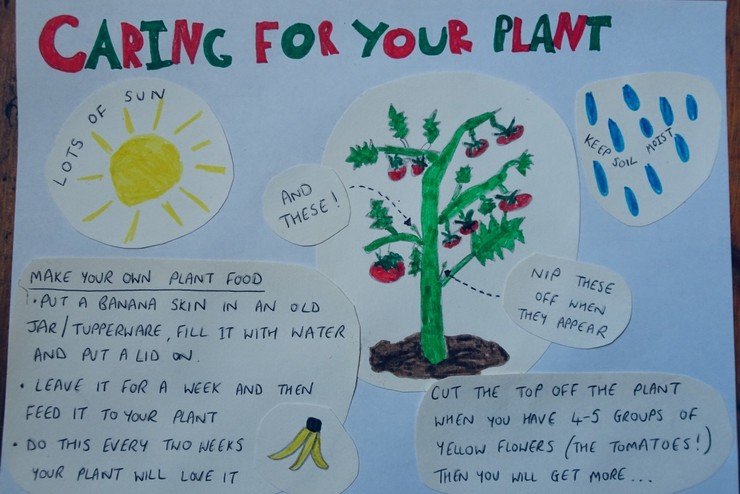 CARING FOR YOUR PLANT
LOTS OF SUN
KEEP SOIL MOIST
AND
THESE!
NIP THESE
OFF WHEN
THEY APPEAR
MAKE YOUR OWN PLANT FOOD
• PUT A BANANA SKIN IN AN OLD
JAR/TUPPERWARE, FILL IT WITH WATER
AND PUT A LID ON.
• LEAVE IT FOR A WEEK AND THEN
FEED IT TO YOUR PLANT
• DO THIS EVERY TWO WEEKS
YOUR PLANT WILL LOVE IT
CUT THE TOP OFF THE PLANT
WHEN YOU HAVE 4-5 GROUPS OF
YELLOW FLOWERS (THE TOMATOES!)
THEN YOU WILL GET MORE...